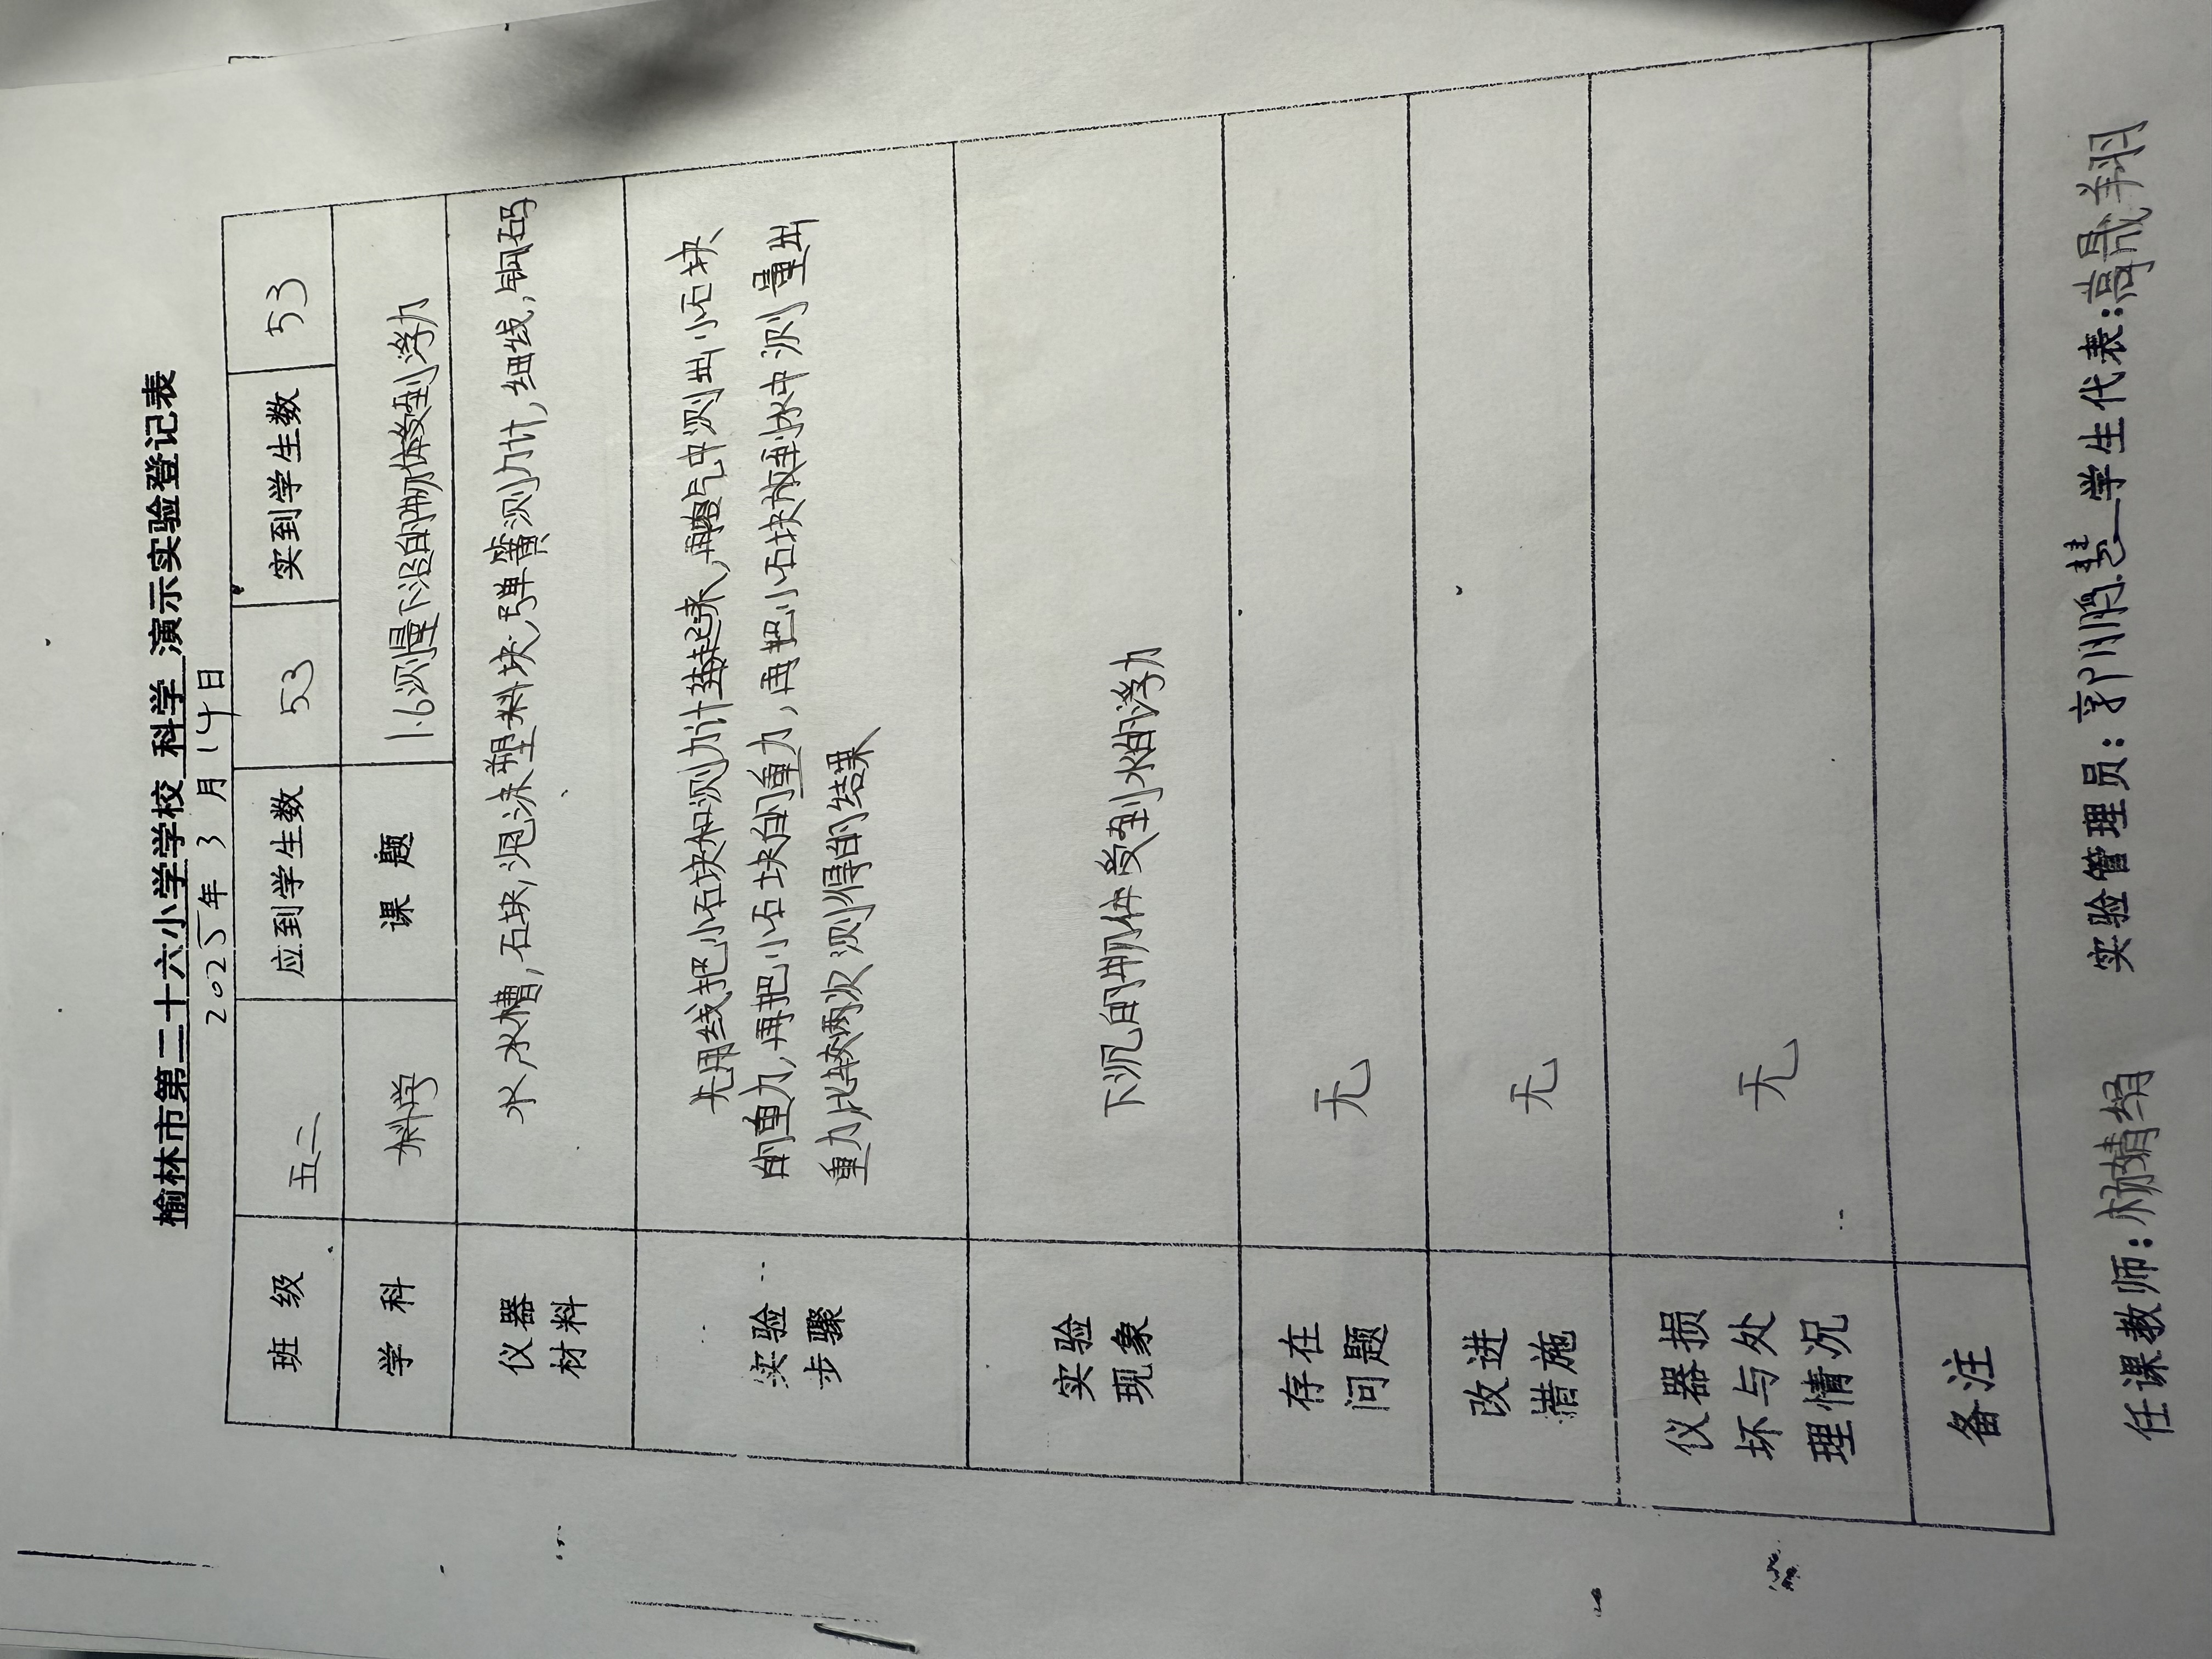 榆林市第二十六小学学校 科学 演示实验登记表
2025年 3 月 14日
班 级 五二 应到学生数 53 实到学生数 53
学 科 科学 课 题 1.6测量下沉的物体受到浮力
仪器
材料
水,水槽,石块,泡沫塑料块,弹簧测力计,细线,钩码
实验
步骤
先用线把小石块和测力计 起来,再 气中测出小石块
的重力,再把小石块的重力,再把小石块放到水中测量出
重力,比较两次测得的结果
实验
现象
下沉的物体受到水的浮力
存在
问题
无
改进
措施
无
仪器损
坏与处
理情况
无
备注
任课教师:杨婧绢 实验管理员:郭鹏慧 学生代表:高晟翔